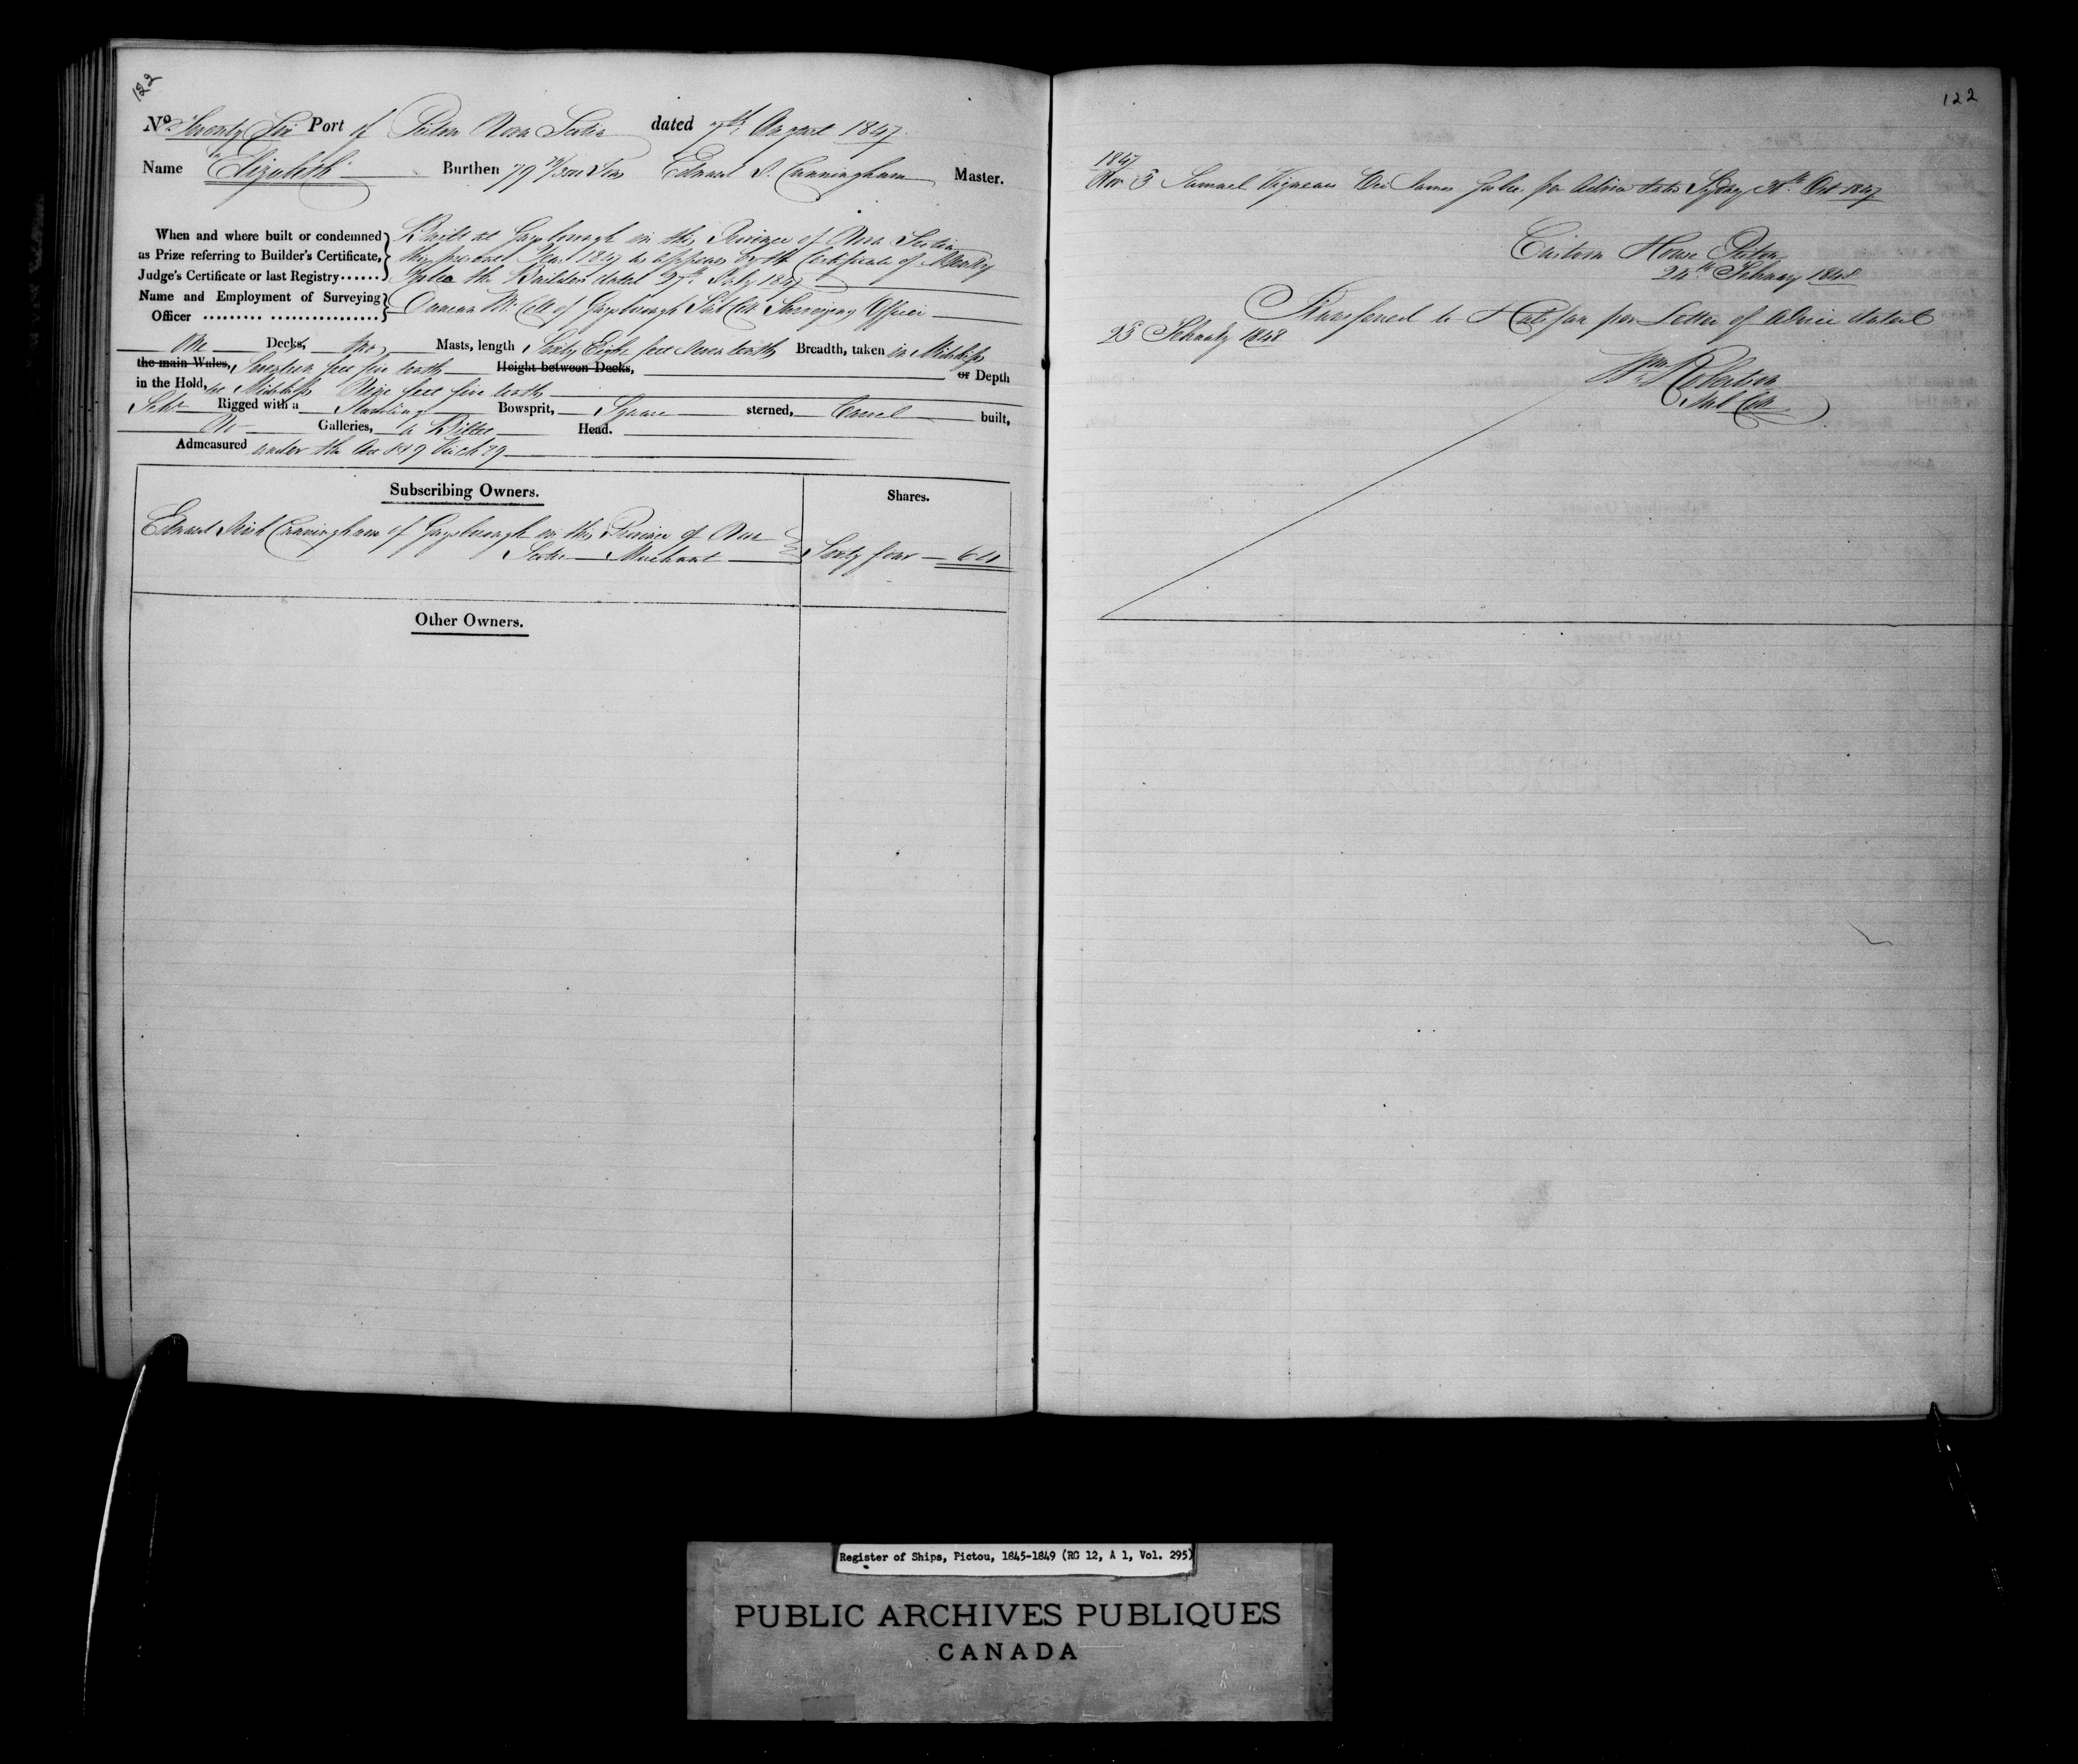 122
No. Seventy Six Port of Pictou Nova Scotia dated 7th August 1847
Name Elizabeth Burthen 79 Tons Edward I. Cunningham Master.
When and where built or condemned as Prize referring to Builder's Certificate, Judge's Certificate or last Registry......
Built at Guysborough in the Province of Nova Scotia
this present Year 1847 as appears by the Certificate of
the Builder dated 27th July 1847
Name and Employment of Surveying Officer
of Guysborough Sub Coll Surveying Officer
One Decks, two Masts, length Sixty Eight feet Seven tenths Breadth, taken in Midships
the main Wales, Seventeen feet five tenths Height between Decks, or Depth
in the Hold, at Midships Nine feet five tenths
Schr Rigged with a Standing Bowsprit, Square sterned, Carvel built,
No Galleries, a Billet Head.
Admeasured under the Act 8 & 9 Vic ch 89
Subscribing Owners. Shares.
Edward Cunningham of Guysborough in the Province of Nova
Scotia Merchant Sixty four 64
Other Owners.
122
1847
Nov 5 Samuel Vigneau Vice James per Advice dated Sydney Oct 1847
Custom House Pictou
24th February 1848
Transferred to Halifax per Letter of Advice dated
25 February 1848
Wm Robertson
Sub Coll
Register of Ships, Pictou, 1845-1849 (RG 12, A 1, Vol. 295)
PUBLIC ARCHIVES PUBLIQUES
CANADA